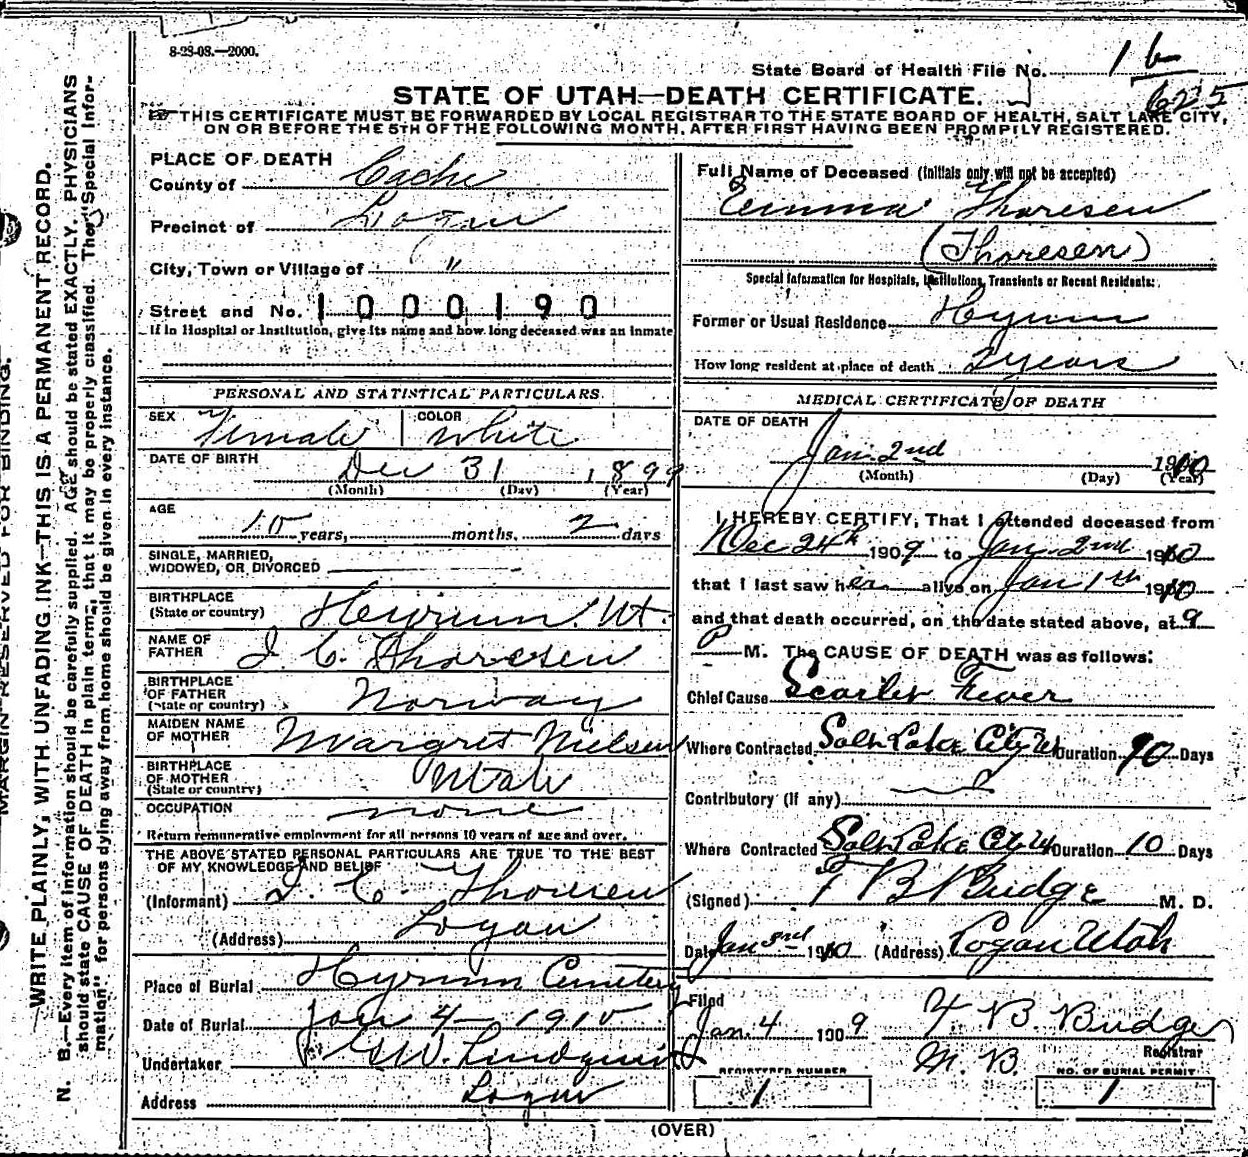 8-28-08.—2000.
State Board of Health File No. 16
625
STATE OF UTAH—DEATH CERTIFICATE.
THIS CERTIFICATE MUST BE FORWARDED BY LOCAL REGISTRAR TO THE STATE BOARD OF HEALTH, SALT LAKE CITY,
ON OR BEFORE THE 5TH OF THE FOLLOWING MONTH, AFTER FIRST HAVING BEEN PROMPTLY REGISTERED.
MARGIN RESERVED FOR BINDING.
WRITE PLAINLY, WITH UNFADING INK—THIS IS A PERMANENT RECORD.
N. B.—Every item of information should be carefully supplied. AGE should be stated EXACTLY. PHYSICIANS
should state CAUSE OF DEATH in plain terms, that it may be properly classified. The "Special Infor-
mation" for persons dying away from home should be given in every instance.
PLACE OF DEATH
County of Cache
Precinct of Logan
City, Town or Village of "
Street and No. 1000190
If in Hospital or Institution, give its name and how long deceased was an inmate
PERSONAL AND STATISTICAL PARTICULARS
SEX Female COLOR White
DATE OF BIRTH Dec 31 1899
(Month) (Day) (Year)
AGE 10 years, months, 2 days
SINGLE, MARRIED,
WIDOWED, OR DIVORCED
BIRTHPLACE
(State or country) Heyrum. Ut.
NAME OF
FATHER I C. Thoresen
BIRTHPLACE
OF FATHER
(State or country) Norway
MAIDEN NAME
OF MOTHER Margret Nielsen
BIRTHPLACE
OF MOTHER
(State or country) Utah
OCCUPATION none
Return remunerative employment for all persons 10 years of age and over.
THE ABOVE STATED PERSONAL PARTICULARS ARE TRUE TO THE BEST
OF MY KNOWLEDGE AND BELIEF
(Informant) I. C. Thoresen
(Address) Logan
Place of Burial Hyrum Cemetery
Date of Burial Jan 4 - 1910
Undertaker W. Lindquist
Address Logan
Full Name of Deceased (Initials only will not be accepted)
Emma Thoresen
(Thoresen)
Special Information for Hospitals, Institutions, Transients or Recent Residents:
Former or Usual Residence Hyrum
How long resident at place of death 2 years
MEDICAL CERTIFICATE OF DEATH
DATE OF DEATH
Jan 2nd 1910
(Month) (Day) (Year)
I HEREBY CERTIFY, That I attended deceased from
Dec 24th 1909 to Jan. 2nd 1910
that I last saw her alive on Jan 1th 1910
and that death occurred, on the date stated above, at 9
P M. The CAUSE OF DEATH was as follows:
Chief Cause Scarlet Fever
Where Contracted Salt Lake City Duration 10 Days
Contributory (If any)
Where Contracted Salt Lake City Duration 10 Days
(Signed) T B Budge M. D.
Date Jan 3rd 1910 (Address) Logan Utah
Filed
Jan. 4 1909 T B. Budge
Registrar
REGISTERED NUMBER
1
NO. OF BURIAL PERMIT
1
(OVER)